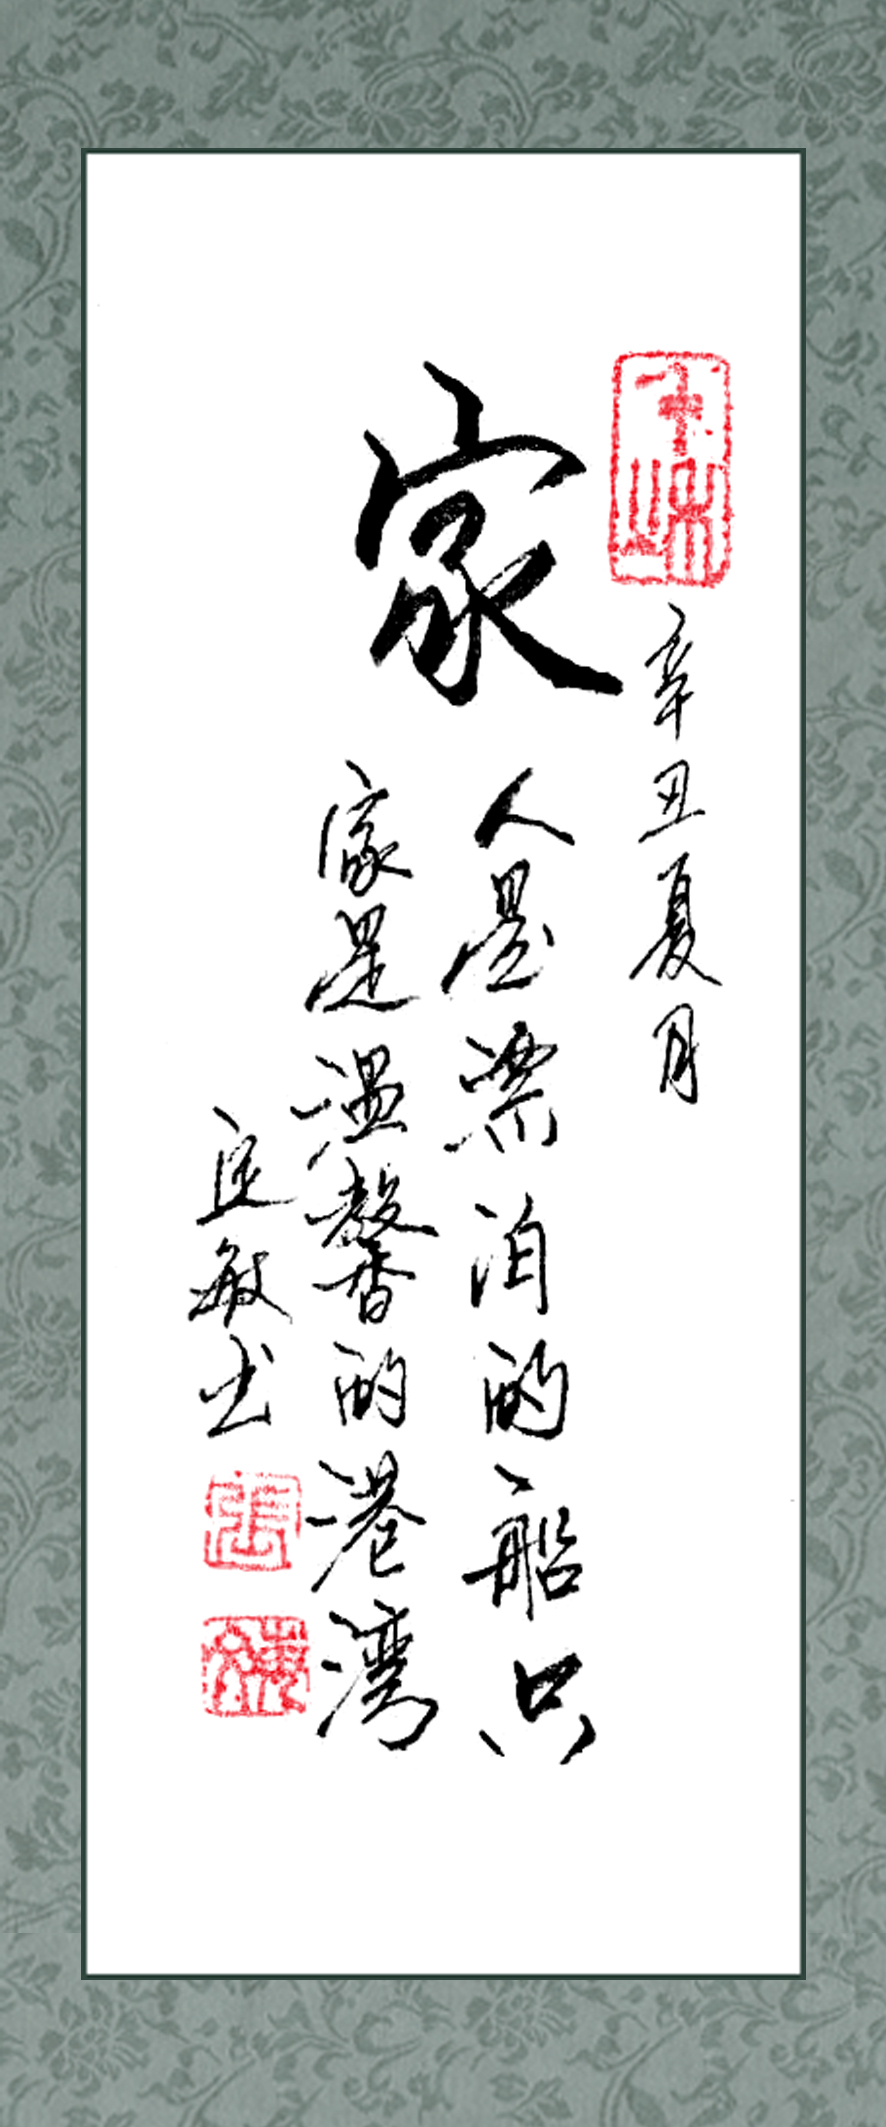 家
辛丑夏月
人是漂泊的船只
家是温馨的港湾
敏书
張